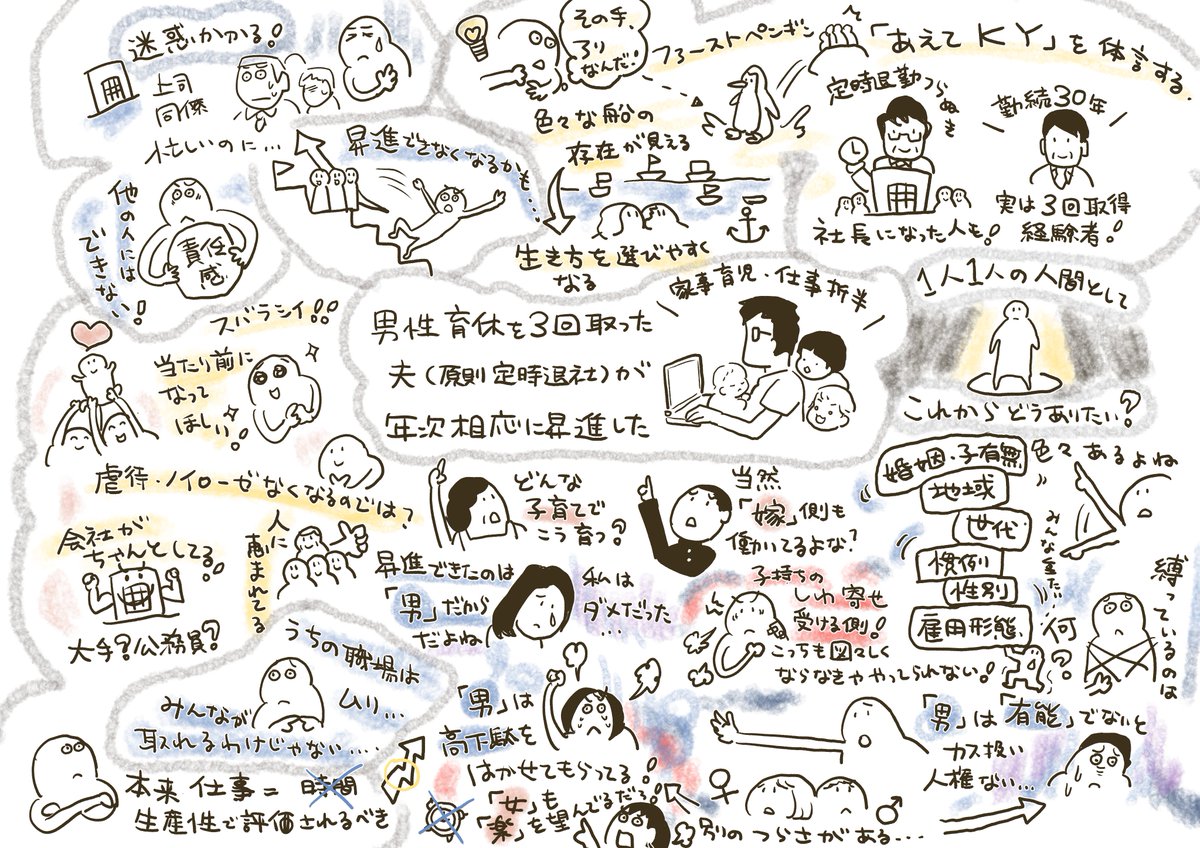 迷惑かかる!
上司
同僚
忙しいのに…
昇進できなくなるかも…
他の人には
できない!
責任
感
その手、
アリ
なんだ!
ファーストペンギン
色々な船の
存在が見える
生き方を選びやすく
なる
「あえてKY」を体言する。
定時退勤つらぬき
社長になった人も!
勤続30年
実は3回取得
経験者!
男性育休を3回取った
夫(原則定時退社)が
年次相応に昇進した
家事育児・仕事折半
1人1人の人間として
これからどうありたい?
スバラシイ!!
当たり前に
なって
ほしい!
虐待・ノイローゼなくなるのでは?
会社が
ちゃんとしてる!
大手?公務員?
人に
恵まれてる
どんな
子育てで
こう育つ?
当然
「嫁」側も
働いてるよな?
昇進できたのは
「男」だから
だよね
私は
ダメだった
…
子持ちの
しわ寄せ
受ける側!
こっちも図々しく
ならなきゃやってられない!
婚姻・子有無
地域
世代
慣例
性別
雇用形態
色々あるよね
みんな重たい
縛っているのは
何?
うちの職場は
ムリ…
みんなが
取れるわけじゃない…
本来仕事=時間
生産性で評価されるべき
「男」は
高下駄を
はかせてもらってる!
「女」も
「楽」を望んでるだろ!
別のつらさがある…
「男」は「有能」でないと
カス扱い
人権ない…